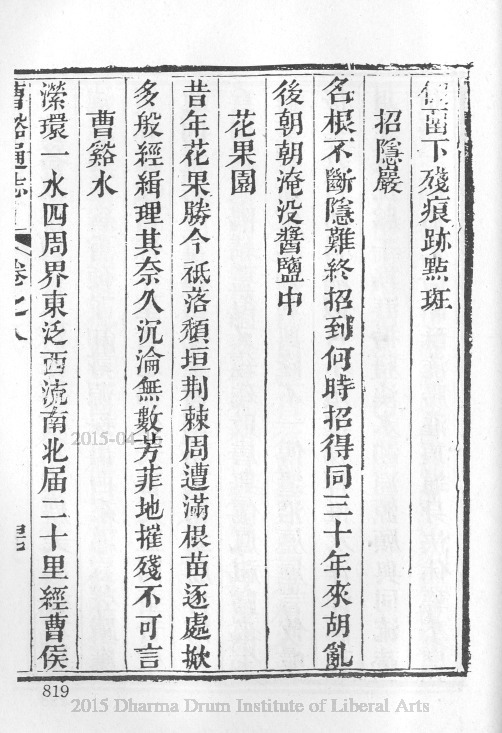 留下殘痕跡點斑
招隱巖
名根不斷隱難終招到何時招得同三十年來胡亂
後朝朝淹没醬鹽中
花果園
昔年花果勝今祗落頹垣荆棘周遭滿根苗逐處掀
多般經緝理其奈久沉淪無數芳菲地摧殘不可言
曹谿水
濚環一水四周界東泛西流南北届二十里經曹侯
曹谿通志
卷之八
819
2015-04
2015 Dharma Drum Institute of Liberal Arts